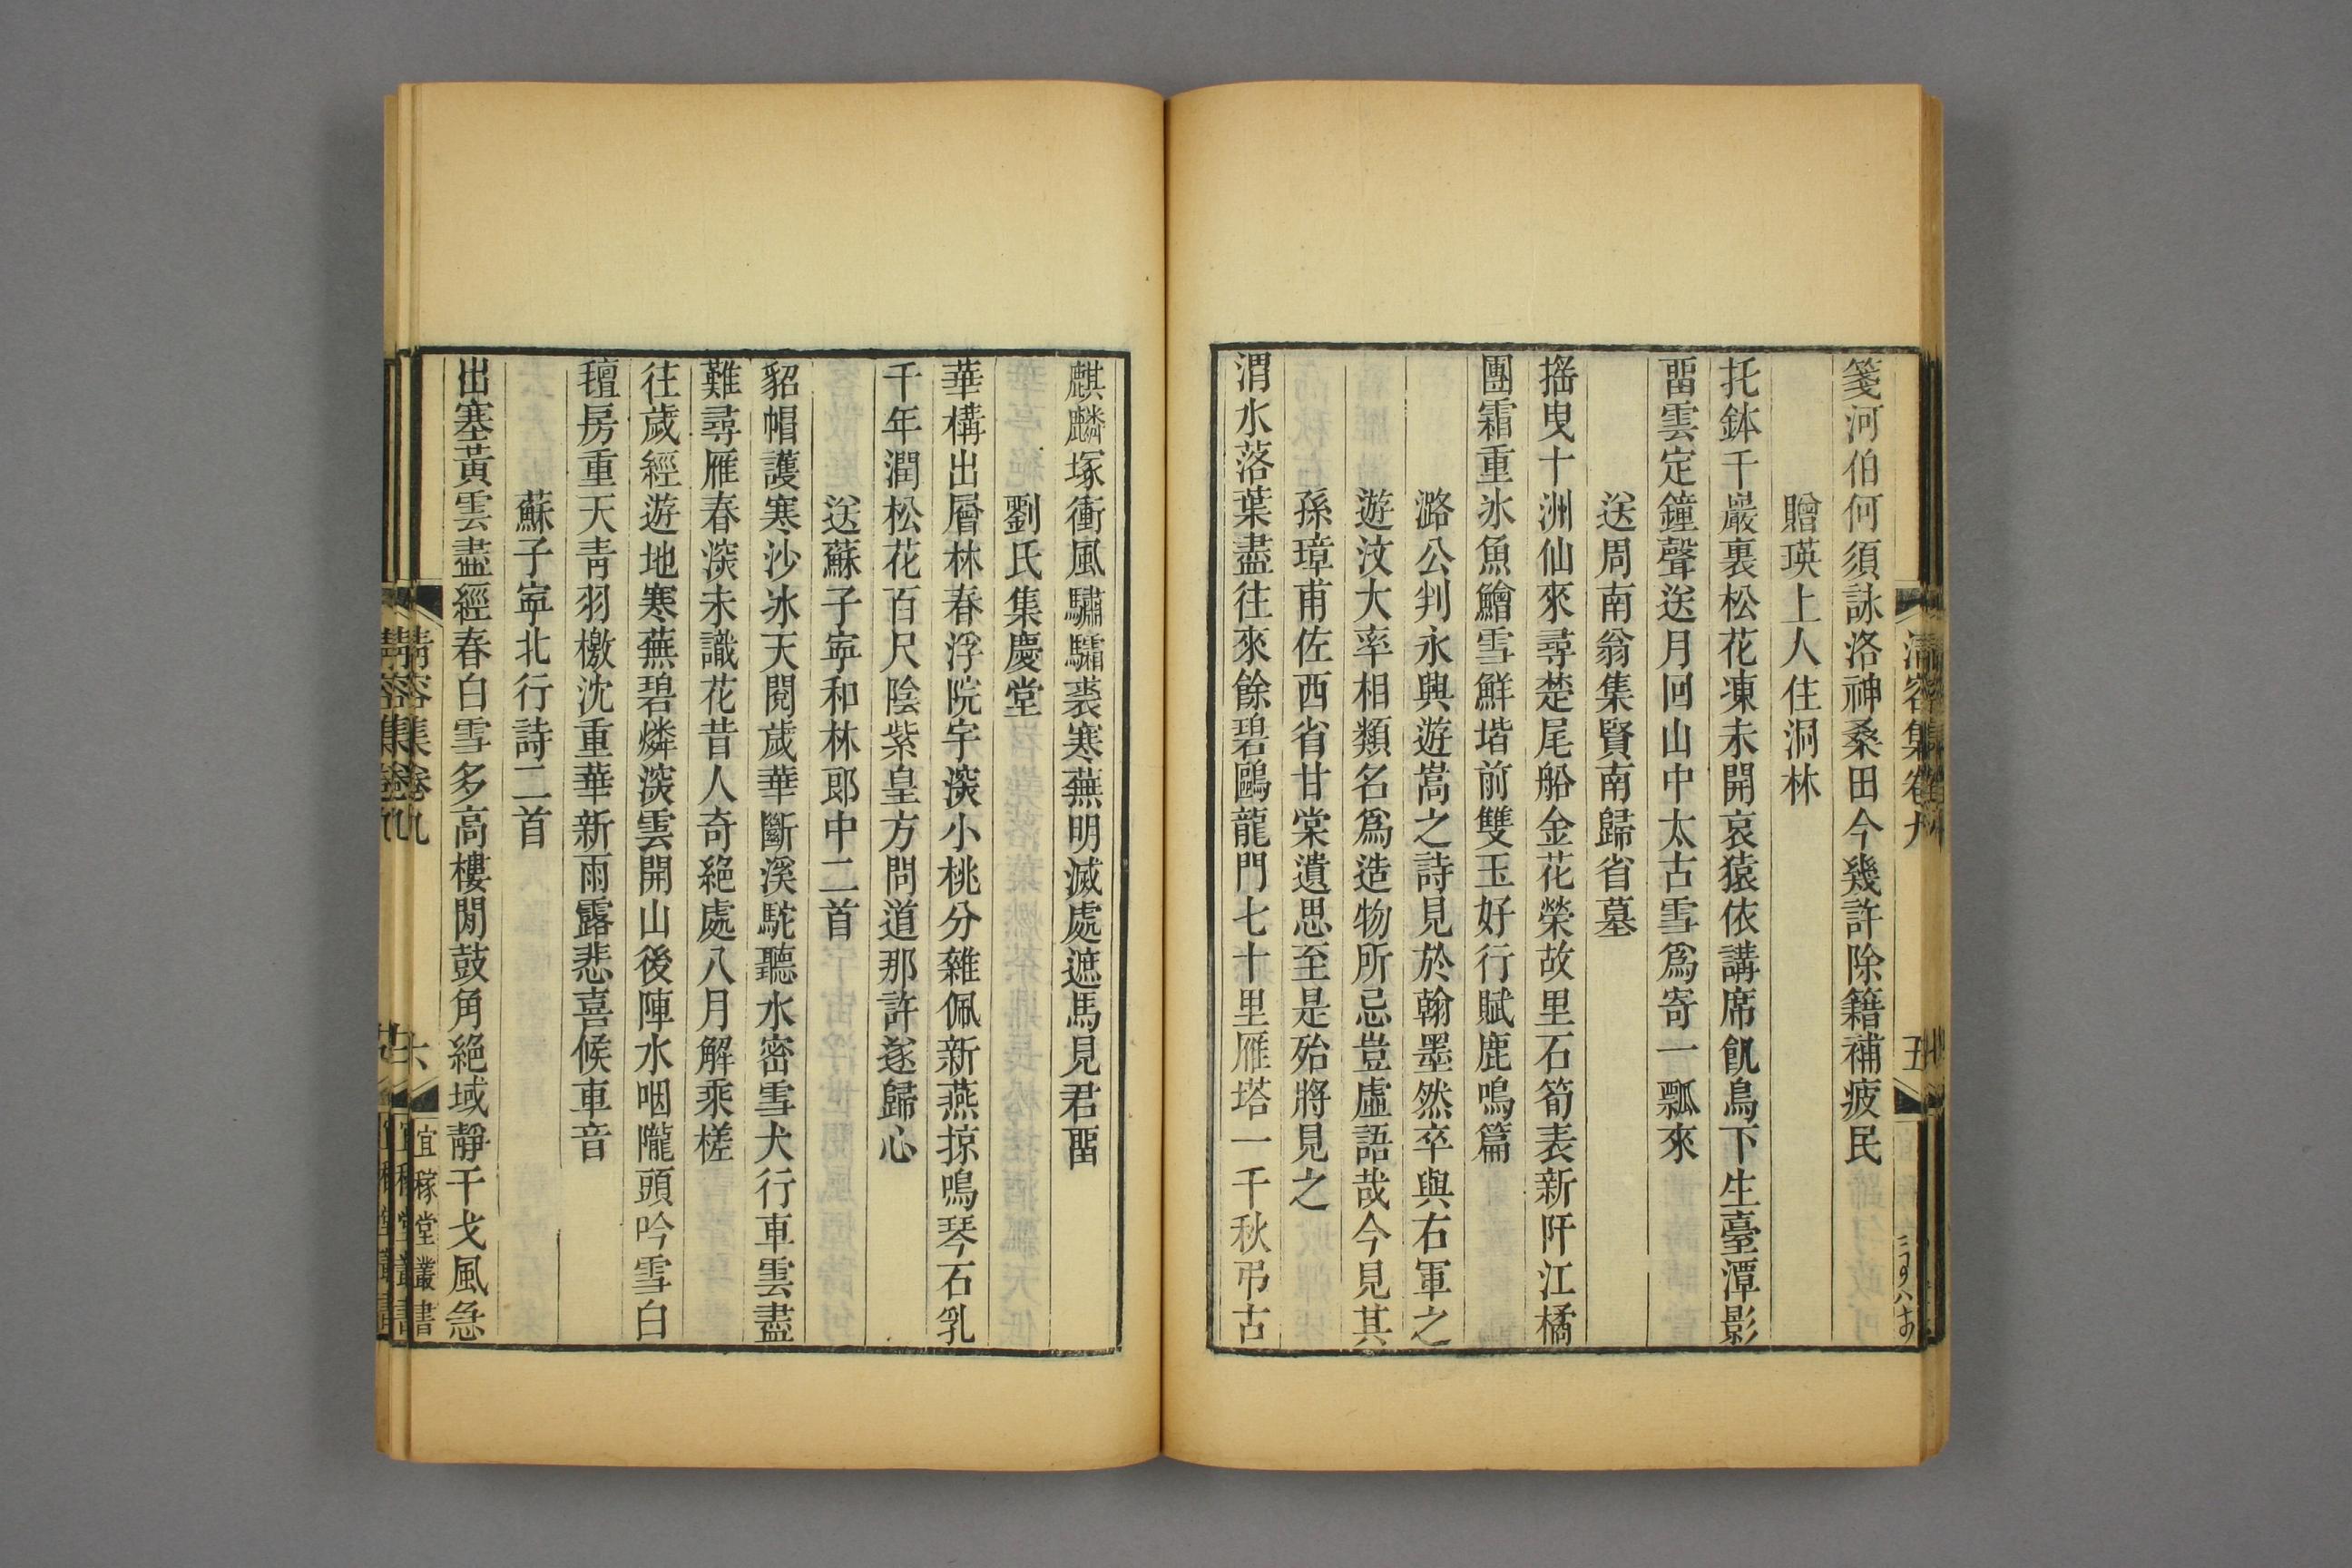 箋河伯何須詠洛神桑田今幾許除籍補疲民
贈瑛上人住洞林
托鉢千巖裏松花凍未開哀猿依講席飢鳥下生臺潭影
畱雲定鐘聲送月回山中太古雪爲寄一瓢來
送周南翁集賢南歸省墓
搖曳十洲仙來尋楚尾船金花榮故里石筍表新阡江橘
團霜重氷魚鱠雪鮮堦前雙玉好行賦鹿鳴篇
潞公判永興遊嵩之詩見於翰墨然卒與右軍之
遊汶大率相類名爲造物所忌豈虛語哉今見其
孫璋甫佐西省甘棠遺思至是殆將見之
渭水落葉盡往來餘碧鷗龍門七十里雁塔一千秋弔古
麒麟塚衝風驌驦裘寒蕪明滅處遮馬見君畱
劉氏集慶堂
華構出層林春浮院宇深小桃分雜佩新燕掠鳴琴石乳
千年潤松花百尺陰紫皇方問道那許遂歸心
送蘇子寧和林郎中二首
貂帽護寒沙氷天閱歲華斷溪駝聽水密雪犬行車雲盡
難尋雁春深未識花昔人奇絕處八月解乘槎
往歲經遊地寒蕪碧燐深雲開山後陣水咽隴頭吟雪白
氊房重天靑羽檄沈重華新雨露悲喜候車音
蘇子寧北行詩二首
出塞黃雲盡經春白雪多高樓閒鼓角絕域靜干戈風急
清容集卷九
五
清容集卷九
六
宜稼堂叢書